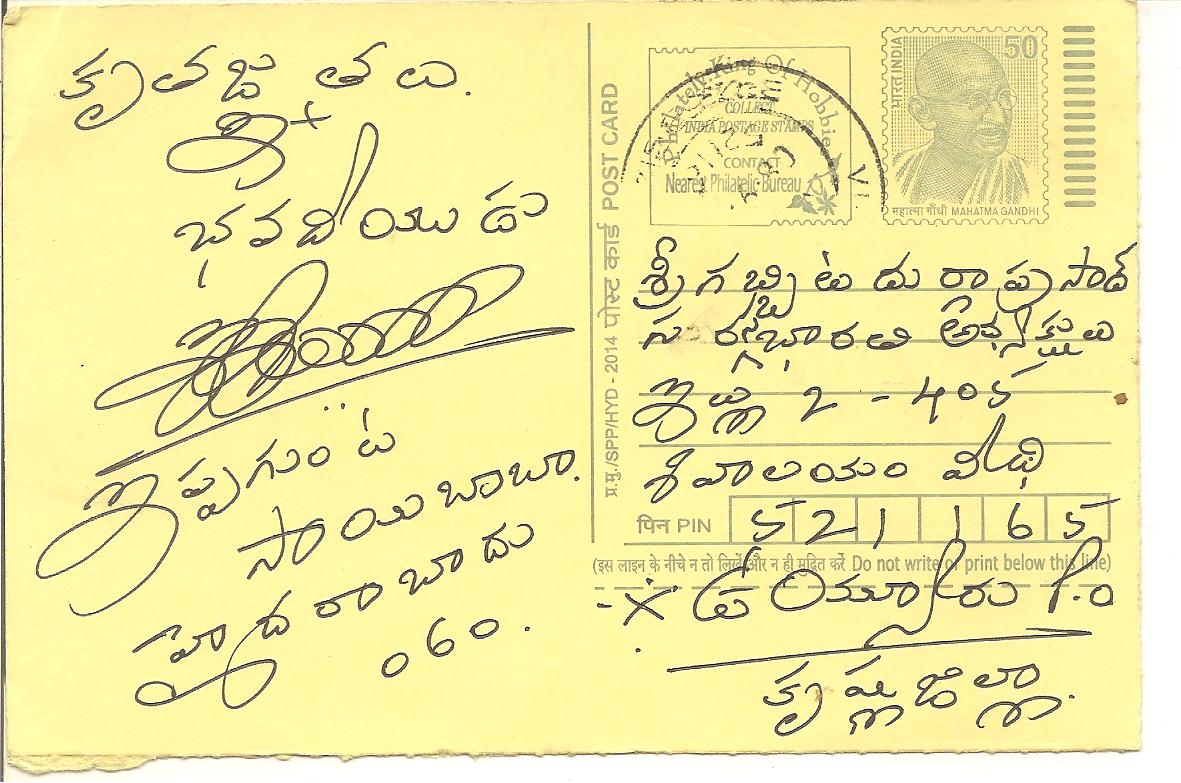 కృతజ్ఞతలు.
భవదీయుడు
గుంట
సాయిబాబా.
హైదరాబాదు
060.
प्र.मु./SPP/HYD - 2014 पोस्ट कार्ड POST CARD
Philately-King Of Hobbies
COLLECT
INDIA POSTAGE STAMPS
CONTACT
Nearest Philatelic Bureau
भारत INDIA
50
महात्मा गाँधी MAHATMA GANDHI
శ్రీ గబ్బిట దుర్గాప్రసాద్
సరసభారతి
2 - 405
శివాలయం వీధి
पिन PIN 521165
(इस लाइन के नीचे न तो लिखें और न ही मुद्रित करें Do not write or print below this line)
ఉయ్యూరు P.O
కృష్ణాజిల్లా.